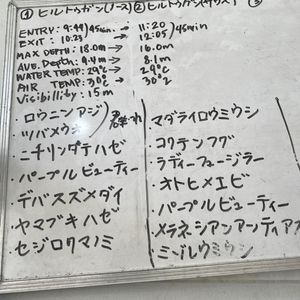 ① ヒルトゥガン(ノース) ② ヒルトゥガン ③
ENTRY: 9:44 45min. 11:20 45min
EXIT: 10:23 12:05
MAX DEPTH: 18.0m → 16.0m
AVE. Depth: 9.4m → 8.1m
WATER TEMP: 29℃ → 29℃
AIR TEMP: 30℃ → 30℃
Visibillity: 15m
・ロウニンアジ
・ツバメウオ
群れ
・ニチリンダテハゼ
・パープルビューティー
・デバスズメダイ
・ヤマブキハゼ
・セジロクマノミ
・マダライロウミウシ
・コクテンフグ
・ラディーフュージラー
・オトヒメエビ
・パープルビューティー
・メラネシアンアンティアス
・ミゾレウミウシ